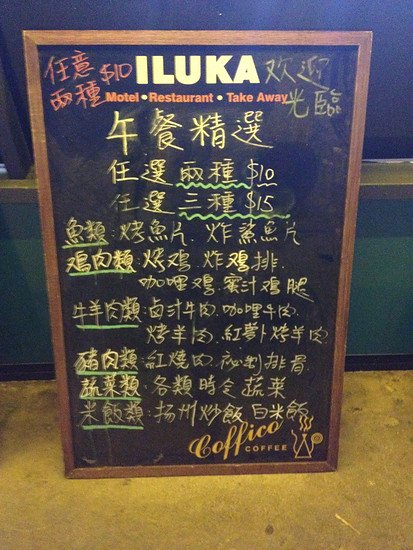 任意 $10 ILUKA 欢迎
兩種 Motel • Restaurant • Take Away 光臨
午餐精選
任選兩種 $10
任選三種 $15
魚類: 烤魚片. 炸魚片
鸡肉類: 烤鸡. 炸鸡排.
咖哩鸡. 蜜汁鸡腿
牛羊肉類: 卤汁牛肉. 咖哩牛肉.
烤羊肉. 紅萝卜烤羊肉.
豬肉類: 紅燒肉. 秘制排骨
蔬菜類: 各類時令蔬菜
米飯類: 扬州炒飯 白米飯
Coffico
COFFEE